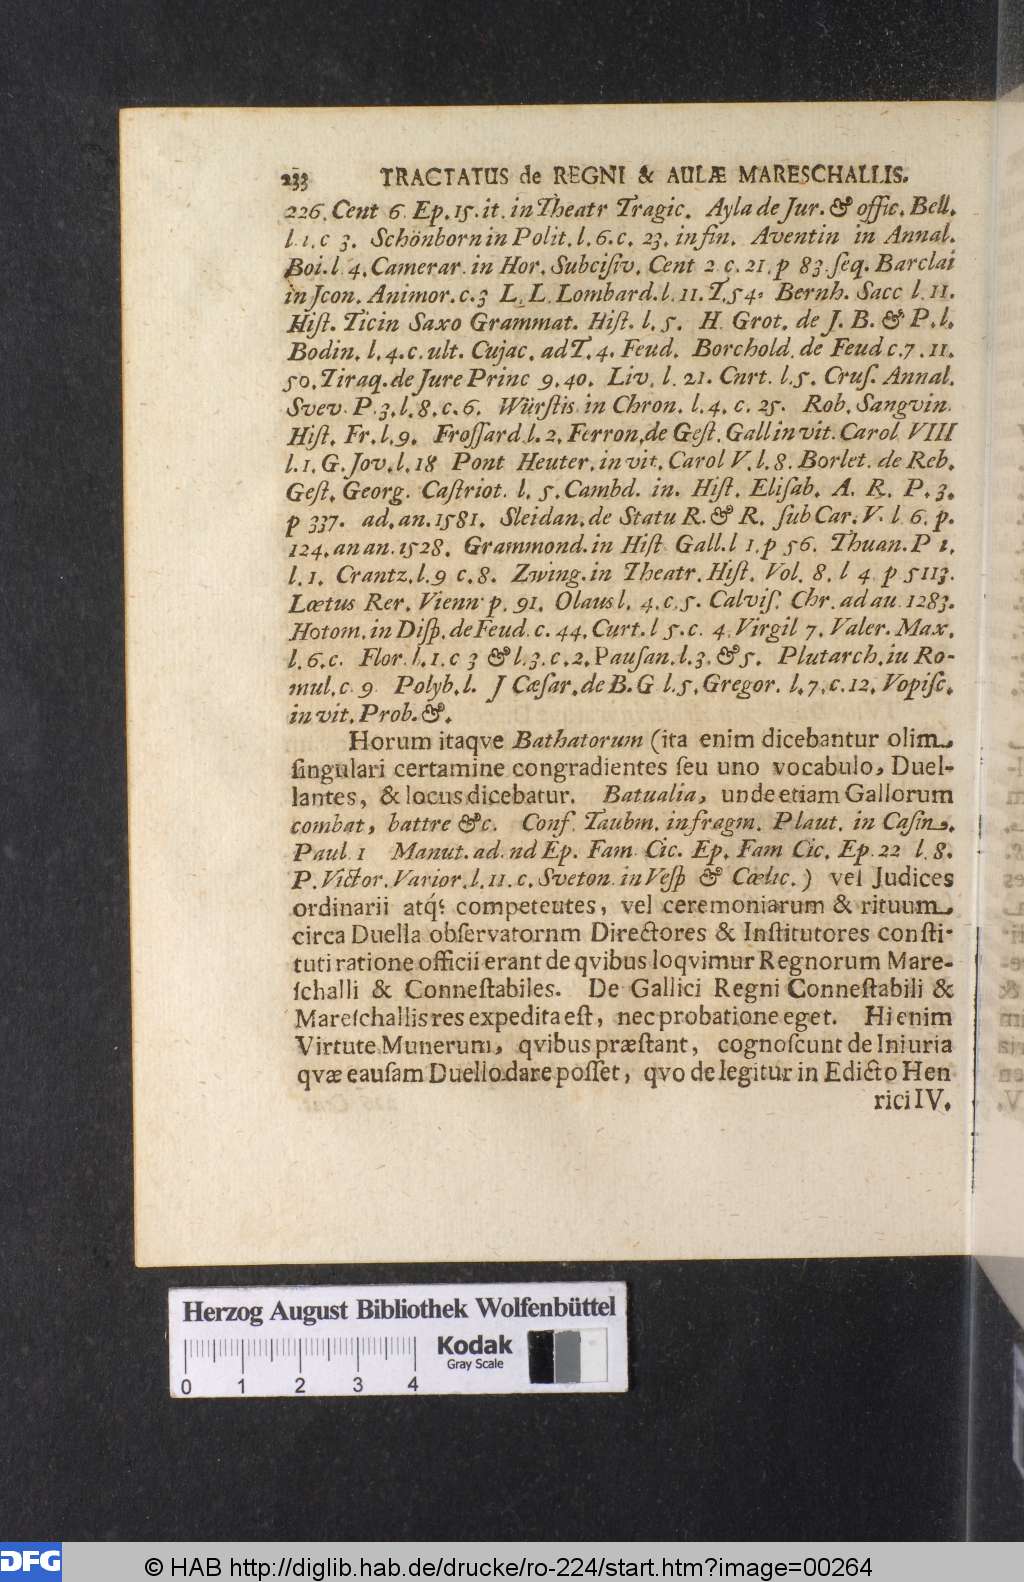 233 TRACTATUS de REGNI & AULÆ MARESCHALLIS.
226. Cent 6 Ep. 15. it. in Theatr Tragic. Ayla de Jur. & offic. Bell.
l. 1. c 3. Schönborn in Polit. l. 6. c. 23. in fin. Aventin in Annal.
Boi. l 4. Camerar. in Hor. Subciſiv. Cent 2 c. 21. p 83. ſeq. Barclai
in Jcon. Animor. c. 3 L. L. Lombard. l. 11. T. 54. Bernh. Sacc l. 11.
Hiſt. Ticin Saxo Grammat. Hiſt. l. 5. H. Grot. de J. B. & P. l.
Bodin. l. 4. c. ult. Cujac. ad T. 4. Feud. Borchold. de Feud c. 7. 11.
50. Tiraq. de Jure Princ 9. 40. Liv. l. 21. Cnrt. l. 5. Cruſ. Annal.
Svev. P. 3. l. 8. c. 6. Würſtis in Chron. l. 4. c. 25. Rob. Sangvin.
Hiſt. Fr. l. 9. Froſſard l. 2. Ferron. de Geſt. Gall in vit. Carol VIII
l. 1. G. Jov. l. 18 Pont Heuter. in vit. Carol V. l. 8. Borlet. de Reb.
Geſt. Georg. Caſtriot. l. 5. Cambd. in. Hiſt. Eliſab. A. R. P. 3.
p 337. ad. an. 1581. Sleidan. de Statu R. & R. ſub Car. V. l 6. p.
124. an an. 1528. Grammond. in Hiſt Gall. l 1. p 56. Thuan. P 1.
l. 1. Crantz. l. 9 c. 8. Zwing. in Theatr. Hiſt. Vol. 8. l 4 p 5113.
Lœtus Rer. Vienn p. 91. Olaus l. 4. c. 5. Calviſ. Chr. ad au 1283.
Hotom. in Diſp. de Feud. c. 44. Curt. l 5. c. 4. Virgil 7. Valer. Max.
l. 6. c. Flor. l. 1. c 3 & l. 3. c. 2. Pauſan. l. 3. & 5. Plutarch. iu Ro-
mul. c. 9 Polyb. l. J Cæſar. de B. G l. 5. Gregor. l. 7. c. 12. Vopiſc.
in vit. Prob. &.
Horum itaqve Bathatorum (ita enim dicebantur olim
ſingulari certamine congradientes ſeu uno vocabulo, Duel-
lantes, & locus dicebatur. Batualia, unde etiam Gallorum
combat, battre &c. Conf. Taubm. in fragm. Plaut. in Caſin.
Paul 1 Manut. ad. nd Ep. Fam. Cic. Ep. Fam Cic. Ep. 22 l. 8.
P. Victor. Varior. l. 11. c. Sveton. in Veſp & Cœlic.) vel Judices
ordinarii atq́; competeutes, vel ceremoniarum & rituum
circa Duella obſervatornm Directores & Inſtitutores conſti-
tuti ratione officii erant de qvibus loqvimur Regnorum Mare-
ſchalli & Conneſtabiles. De Gallici Regni Conneſtabili &
Mareſchallis res expedita eſt, nec probatione eget. Hi enim
Virtute Munerum, qvibus præſtant, cognoſcunt de Iniuria
qvæ eauſam Duello dare poſſet, qvo de legitur in Edicto Hen
rici IV.
Herzog August Bibliothek Wolfenbüttel
Kodak
Gray Scale
0 1 2 3 4
DFG © HAB http://diglib.hab.de/drucke/ro-224/start.htm?image=00264